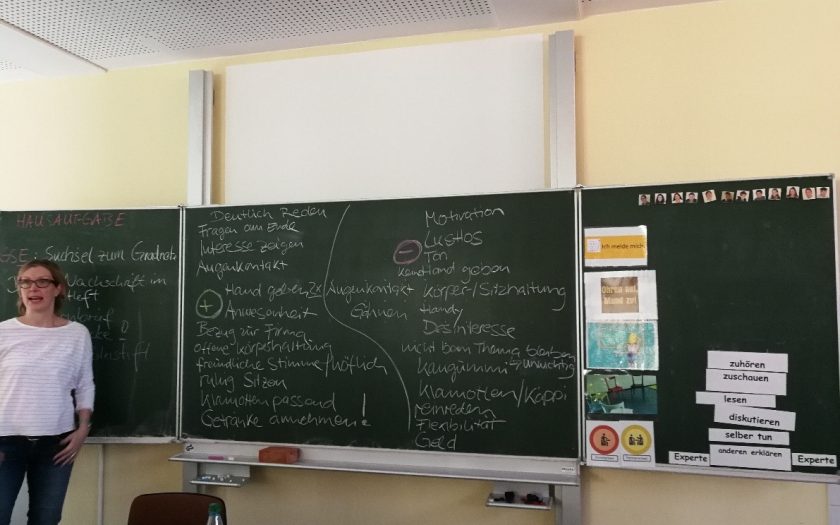 HAUSAUFGABE
Suchsel zum Quadrat
Nachschrift im
Heft
Deutlich Reden
Fragen am Ende
Interesse zeigen
Augenkontakt
+
Hand geben
Anwesenheit
Bezug zur Firma
offene Körperhaltung
freundliche Stimme/höflich
ruhig Sitzen
Klamotten passend
Getränke annehmen!
Motivation
-
Lustlos
Ton
kein Hand geben
Augenkontakt
Körper-/Sitzhaltung
Gähnen
Handy
Desinteresse
nicht beim Thema bleiben
Kaugummi
Klamotten/Käppi
reinreden
Flexibilität
Geld
Ich melde mich
Ohren auf,
Mund zu!
zuhören
zuschauen
lesen
diskutieren
selber tun
Experte anderen erklären Experte